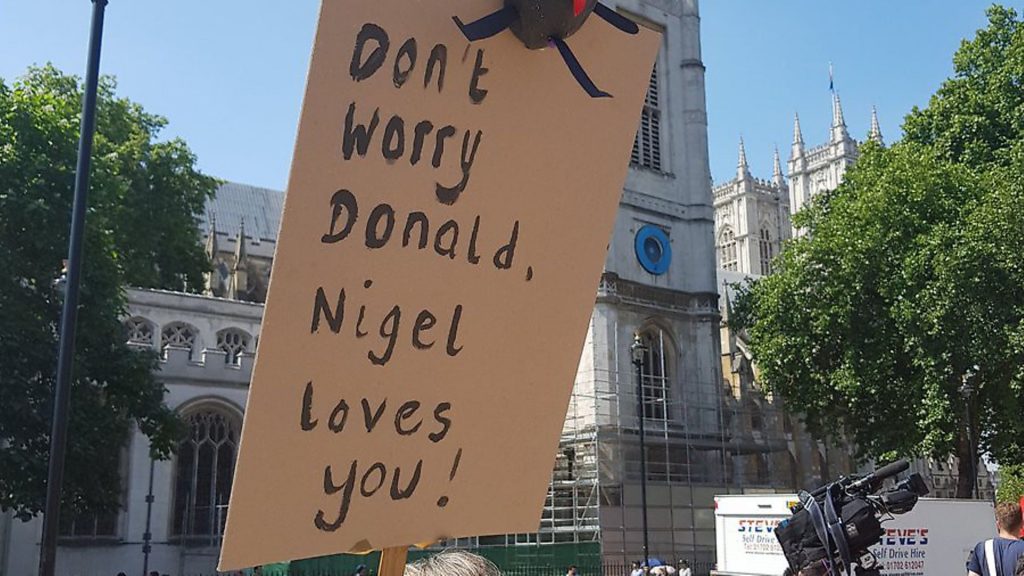 Don't
Worry
Donald,
Nigel
loves
you!
STEVE'S
Self Drive Hire
Tel: 01702 612047
EVE'S
Self Drive Hire